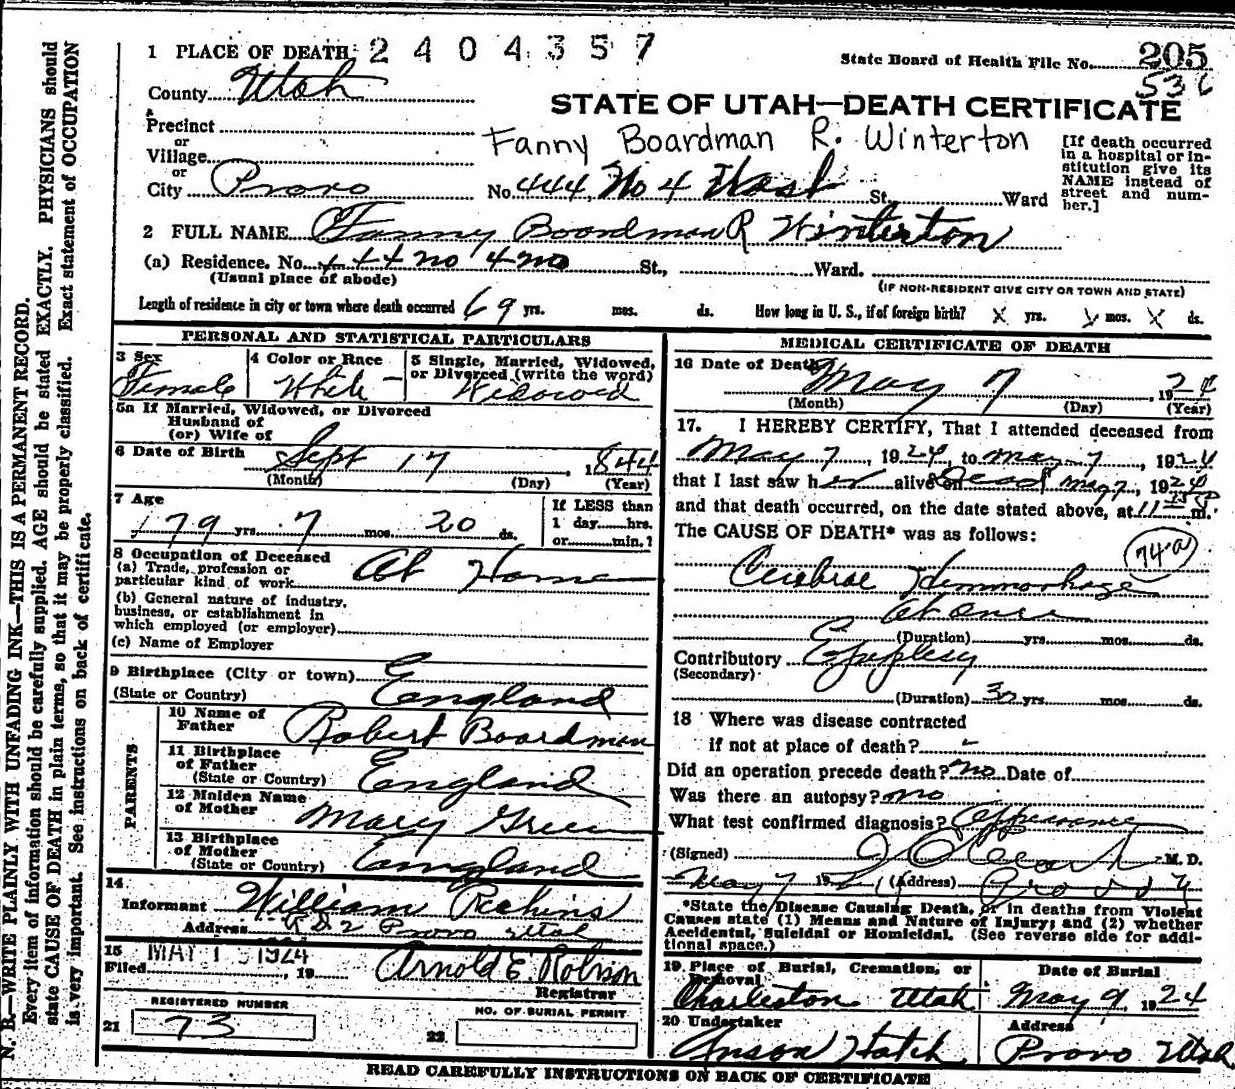 N. B.—WRITE PLAINLY WITH UNFADING INK—THIS IS A PERMANENT RECORD.
Every item of information should be carefully supplied. AGE should be stated EXACTLY. PHYSICIANS should
state CAUSE OF DEATH in plain terms, so that it may be properly classified. Exact statement of OCCUPATION
is very important. See instructions on back of certificate.
1 PLACE OF DEATH 2404357
State Board of Health File No. 205
536
County Utah
STATE OF UTAH—DEATH CERTIFICATE
Precinct
or
Village
or
City Provo
Fanny Boardman R. Winterton
No. 444, No 4 West St. Ward
[If death occurred
in a hospital or in-
stitution give its
NAME instead of
street and num-
ber.]
2 FULL NAME Fanny Boardman R Winterton
(a) Residence. No. 444 no 4 no St., Ward.
(Usual place of abode)
(IF NON-RESIDENT GIVE CITY OR TOWN AND STATE)
Length of residence in city or town where death occurred 69 yrs. mos. ds. How long in U. S., if of foreign birth? x yrs. x mos. x ds.
PERSONAL AND STATISTICAL PARTICULARS
3 Sex
Female
4 Color or Race
White
5 Single, Married, Widowed,
or Divorced (write the word)
Widowed
5a If Married, Widowed, or Divorced
Husband of
(or) Wife of
6 Date of Birth Sept 17, 1844
(Month) (Day) (Year)
7 Age
79 yrs. 7 mos. 20 ds.
If LESS than
1 day hrs.
or min.?
8 Occupation of Deceased
(a) Trade, profession or
particular kind of work At Home
(b) General nature of industry,
business, or establishment in
which employed (or employer)
(c) Name of Employer
9 Birthplace (City or town)
(State or Country) England
PARENTS
10 Name of
Father Robert Boardman
11 Birthplace
of Father
(State or Country) England
12 Maiden Name
of Mother Mary Green
13 Birthplace
of Mother
(State or Country) England
14
Informant William Perkins
Address R D 2 Provo Utah
15 MAY 1 1924
Filed , 19
Arnold E. Robison
Registrar
REGISTERED NUMBER
21 73
NO. OF BURIAL PERMIT
22
MEDICAL CERTIFICATE OF DEATH
16 Date of Death May 7, 1924
(Month) (Day) (Year)
17. I HEREBY CERTIFY, That I attended deceased from
May 7, 1924, to May 7, 1924
that I last saw her alive on Dead May 7, 1924
and that death occurred, on the date stated above, at 11 m.
The CAUSE OF DEATH* was as follows:
74-a
Cerebral Hemmorhage
at once
(Duration) yrs. mos. ds.
Contributory Epilepsy
(Secondary)
(Duration) 30 yrs. mos. ds.
18 Where was disease contracted
if not at place of death?
Did an operation precede death? no Date of
Was there an autopsy? no
What test confirmed diagnosis? Appearance
(Signed) M. D.
May 7 192 (Address) Provo
*State the Disease Causing Death, or in deaths from Violent
Causes state (1) Means and Nature of Injury; and (2) whether
Accidental, Suicidal or Homicidal. (See reverse side for addi-
tional space.)
19 Place of Burial, Cremation, or
Removal
Charleston Utah
Date of Burial
May 9, 1924
20 Undertaker
Anson Hatch
Address
Provo Utah
READ CAREFULLY INSTRUCTIONS ON BACK OF CERTIFICATE